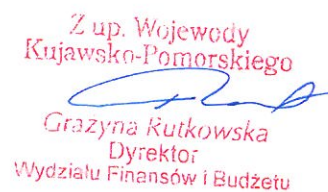 Z up. Wojewody
Kujawsko-Pomorskiego
Grażyna Rutkowska
Dyrektor
Wydziału Finansów i Budżetu